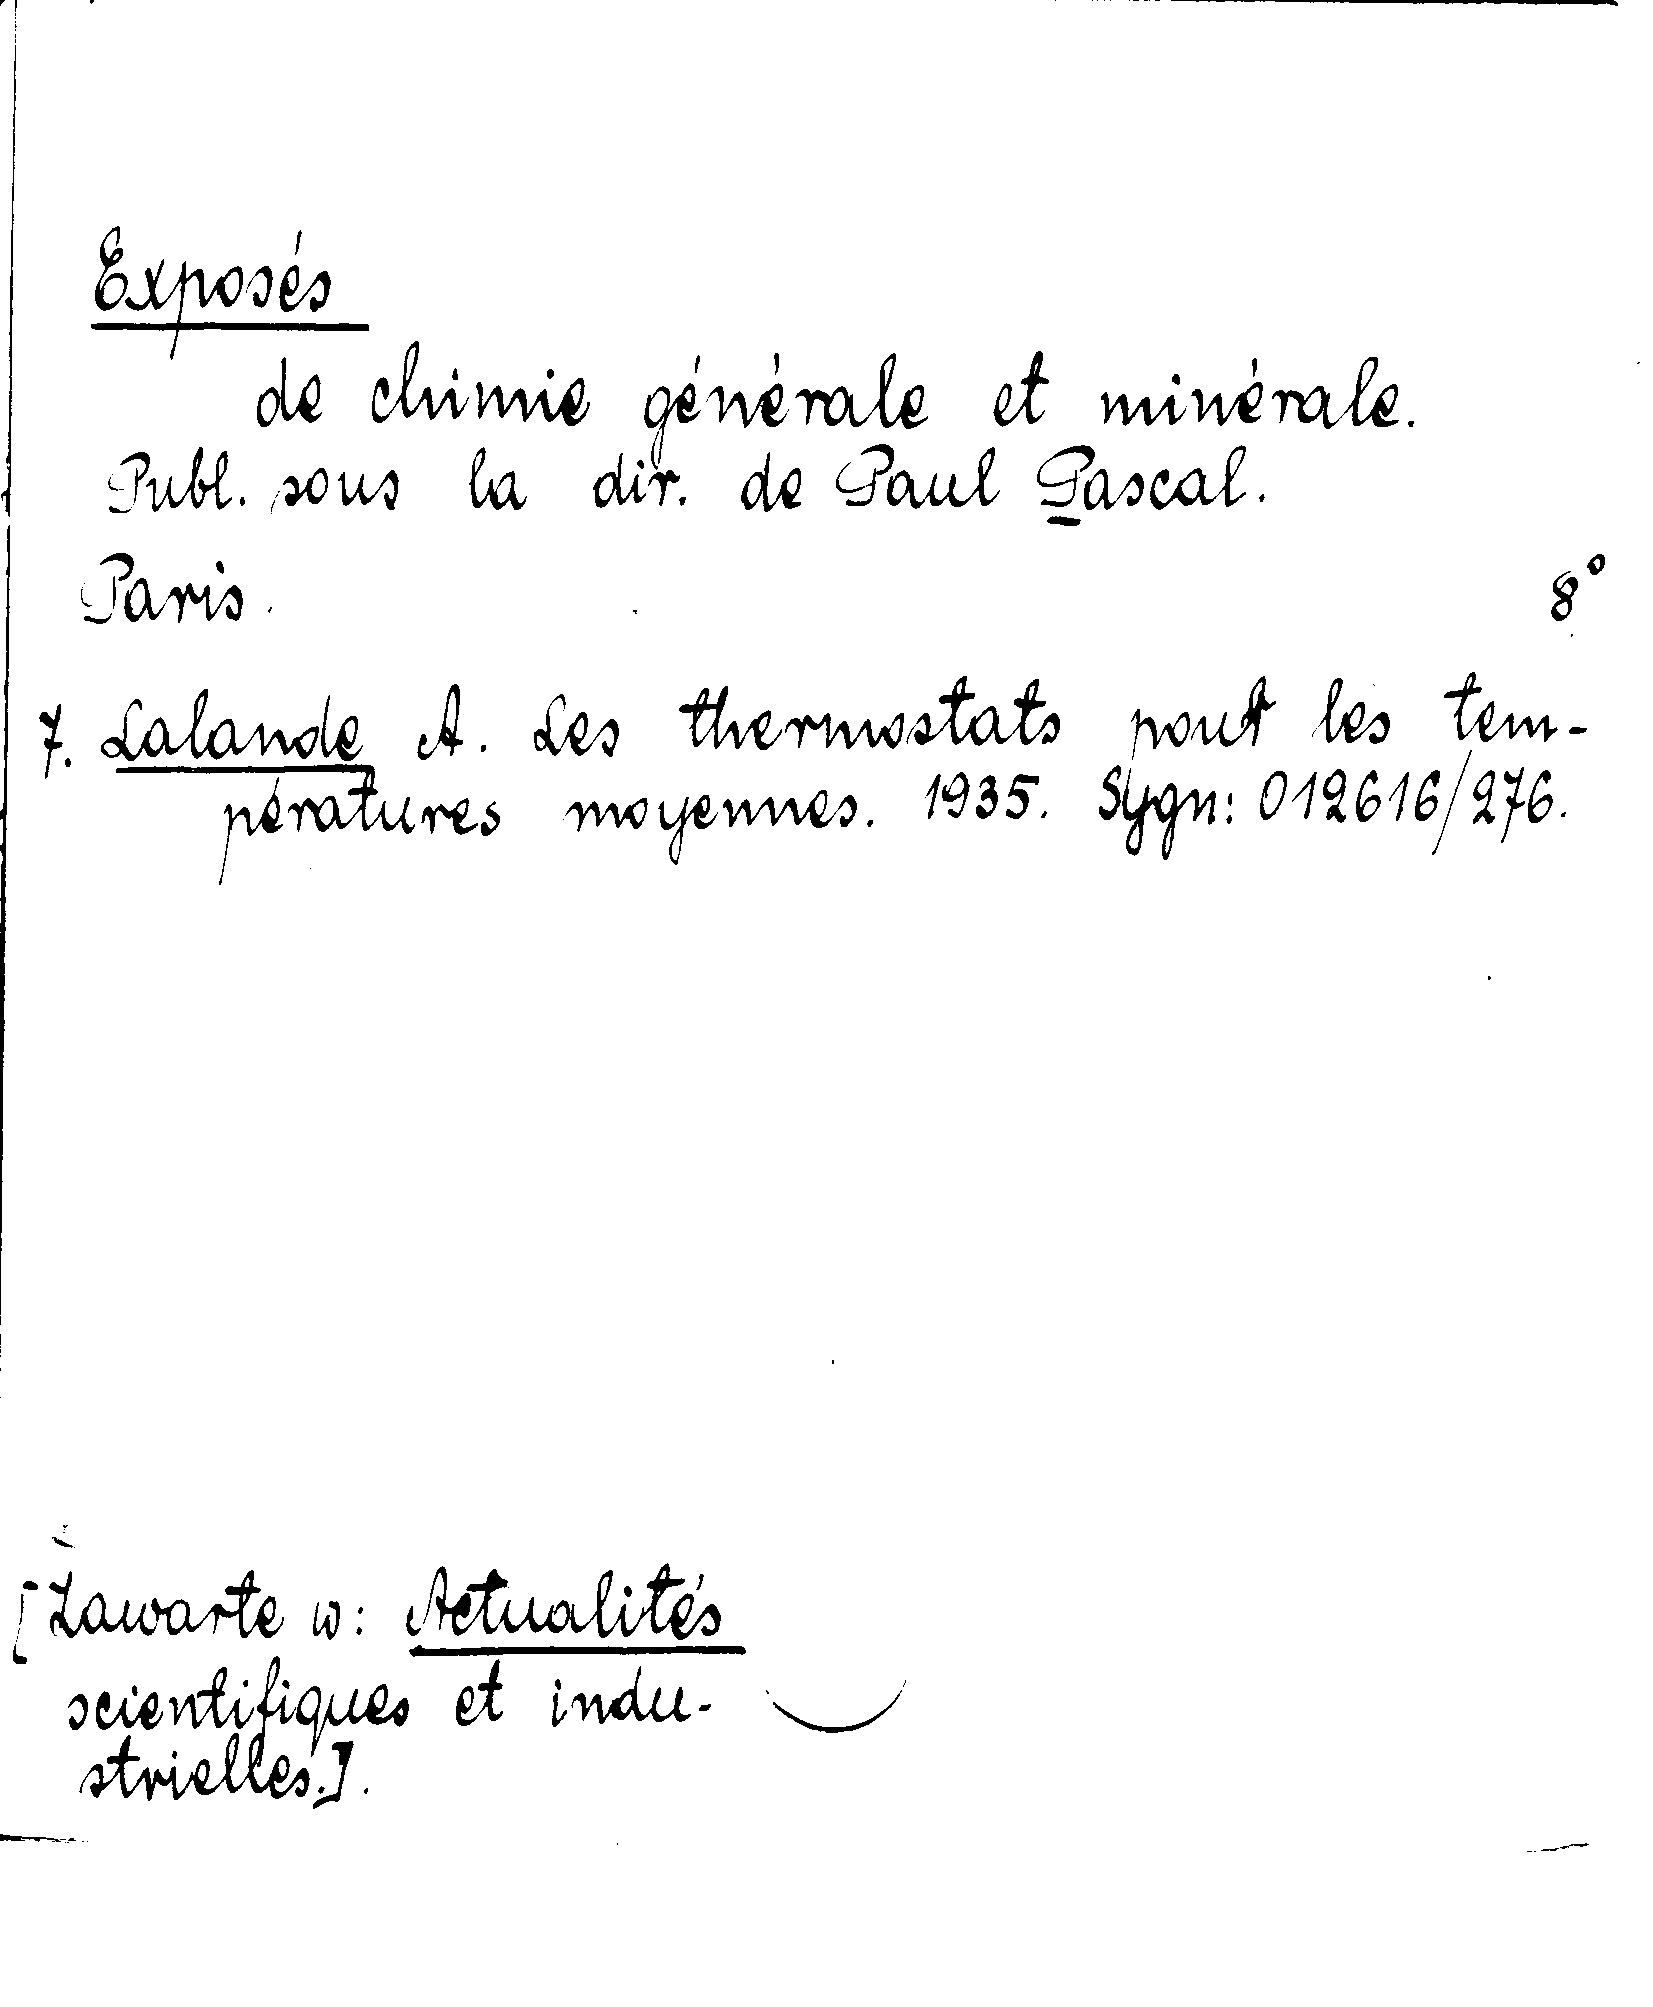 Exposés
de chimie générale et minérale.
Publ. sous la dir. de Paul Pascal.
Paris. 8°
7. Lalande A. Les thermostats pour les tem-
pératures moyennes. 1935. Sygn: 012616/276.
[Zawarte w: Actualités
scientifiques et indu-
strielles.].